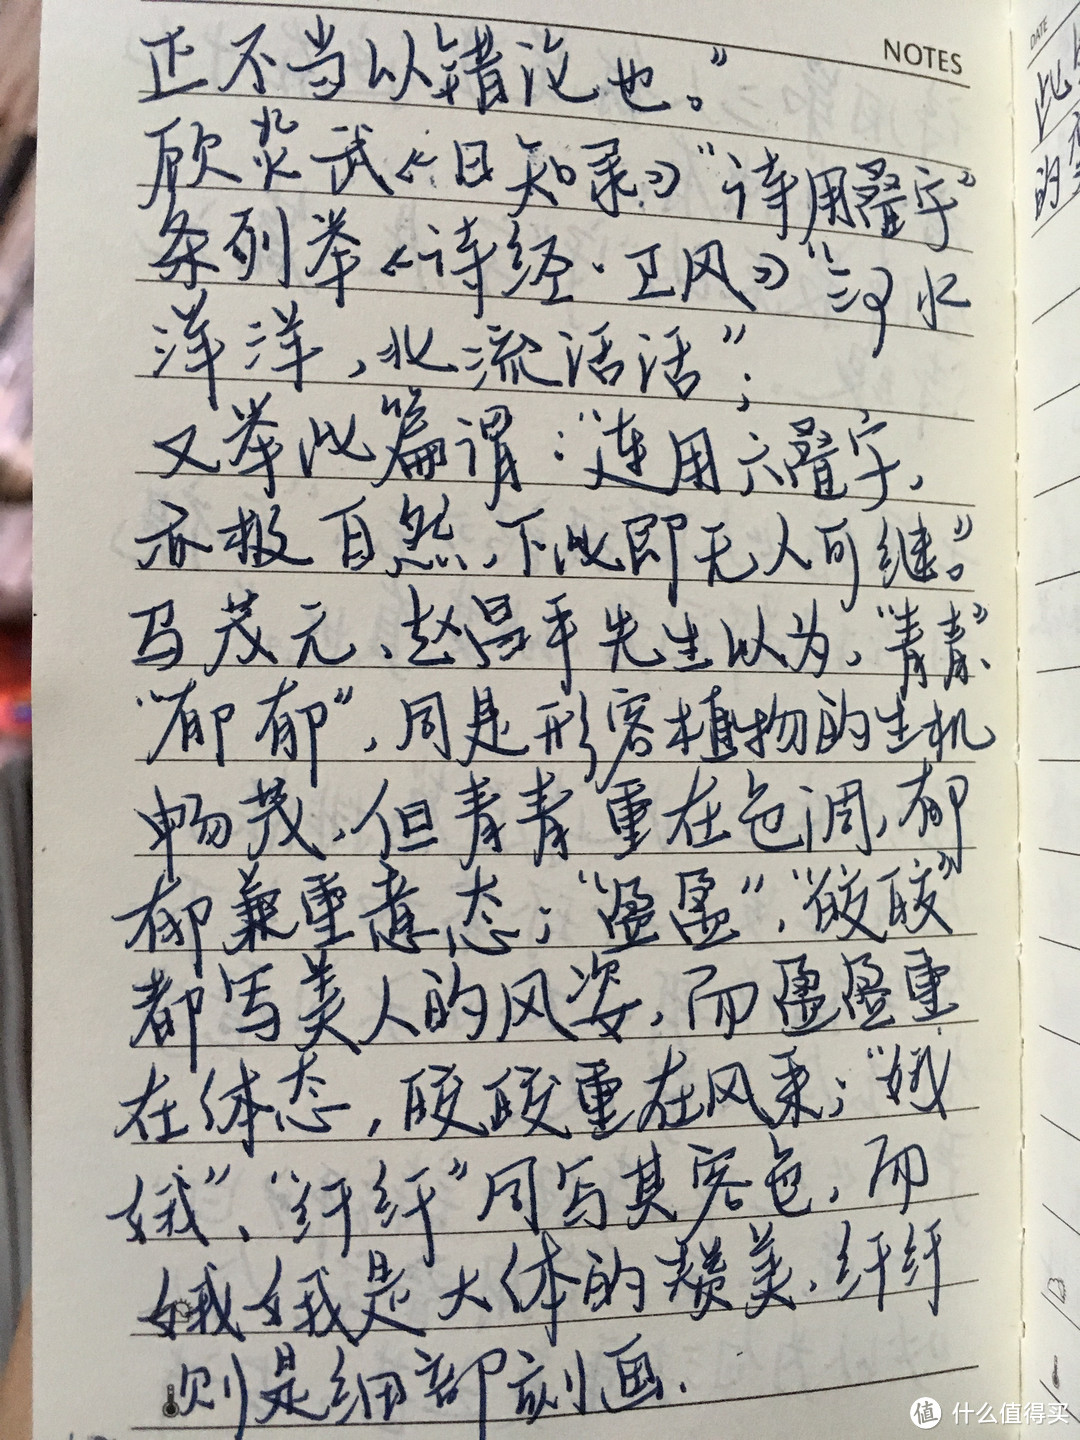 NOTES
正不当以错论也。”
顾炎武《日知录》“诗用叠字”
条列举《诗经·卫风》“河水
洋洋,北流活活”;
又举此篇谓:“连用六叠字,
亦极自然,下此即无人可继。”
马茂元、赵昌平先生以为,“青青”、
“郁郁”,同是形容植物的生机
畅茂,但青青重在色调,郁
郁兼重意态;“盈盈”、“皎皎”
都写美人的风姿,而盈盈重
在体态,皎皎重在风采;“娥
娥”、“纤纤”同写其容色,而
娥娥是大体的赞美,纤纤
则是细部刻画.
DATE
此
的
值 什么值得买